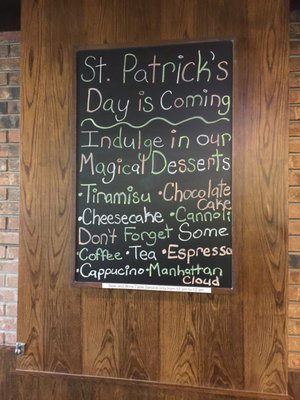 St. Patrick's
Day is Coming
Indulge in our
Magical Desserts
Tiramisu •Chocolate
Cake
•Cheesecake •Cannoli
Don't Forget Some
•Coffee •Tea •Espresso
•Cappucino •Manhattan
Cloud